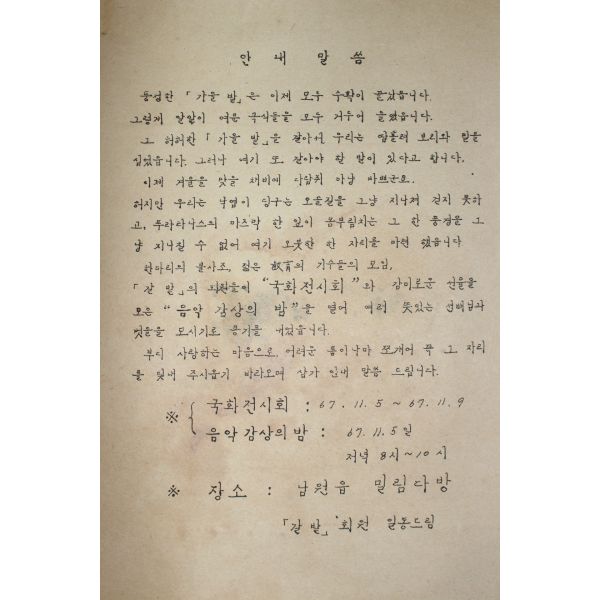 안 내 말 씀
풍성한 「가을 밭」은 이제 모두 수확이 끝났읍니다.
그렇게 알알이 여문 곡식들을 모두 거두어 들였읍니다.
그 허허한 「가을 밭」을 갈아서 우리는 땀흘려 보리와 밀을
심었읍니다. 그러나 여기 또 갈아야 할 밭이 있다고 합니다.
이제 겨울을 맞을 채비에 다람쥐 마냥 바쁘군요.
허지만 우리는 낙엽이 딩구는 오솔길을 그냥 지나쳐 걷지 못하
고, 푸라타나스의 마즈막 한 잎이 몸부림치는 그 한 풍경을 그
냥 지나칠 수 없어 여기 오붓한 한 자리를 마련 했읍니다
한마리의 불사조, 젊은 敎育의 기수들의 모임,
「갈 밭」의 회원들이 “국화전시회”와 감미로운 선율을
모은 “음악 감상의 밤”을 열어 여러 뜻있는 선배님과
벗들을 모시기로 용기를 내었읍니다.
부디 사랑하는 마음으로, 어려운 틈이나마 쪼개어 꼭 그 자리
를 빛내 주시옵기 바라오며 삼가 안내 말씀 드립니다.
※ 국화전시회 : 67. 11. 5 ~ 67. 11. 9
음악감상의밤 : 67. 11. 5일
저녁 8시~10시
※ 장소 : 남원읍 밀림다방
「갈 밭」 회원 일동드림